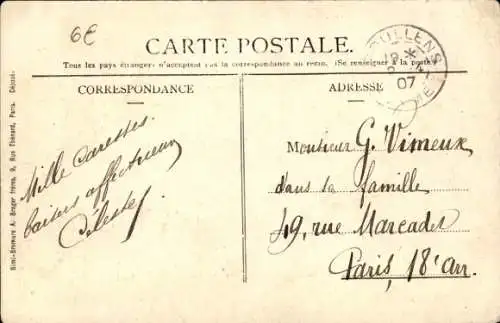 6€
CARTE POSTALE.
Tous les pays étrangers n'acceptent pas la correspondance au recto. (Se renseigner à la poste)
CORRESPONDANCE
ADRESSE
DOULLENS
07
Mille caresses
baisers affectueux
Céleste
Monsieur G. Vimeux
dans sa famille
49, rue Marcadet
Paris, 18e Arr.
Simi-Bromure A. Breger frères, 9, Rue Thénard, Paris.